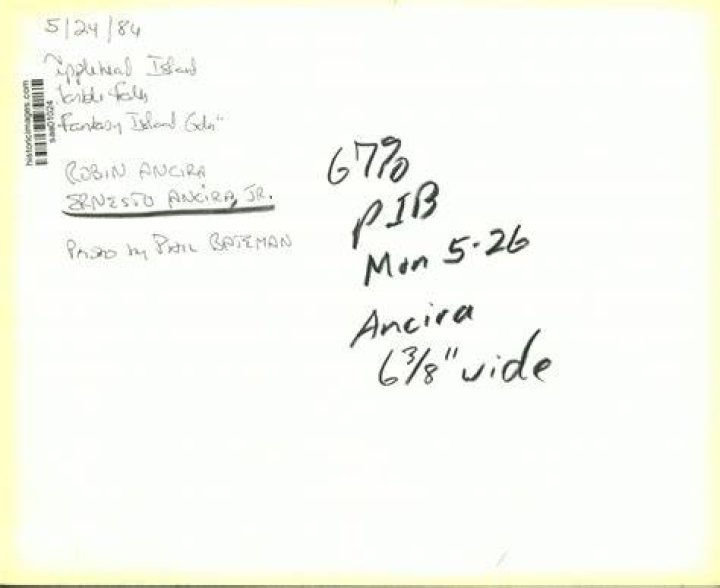 5/24/84
Island
Fantasy Island Gala"
ROBIN ANCIRA
ERNESTO ANCIRA, JR.
PHOTO by PHIL BATEMAN
historicimages.com
saa01024
67%
PIB
Mon 5-26
Ancira
6 3/8" wide